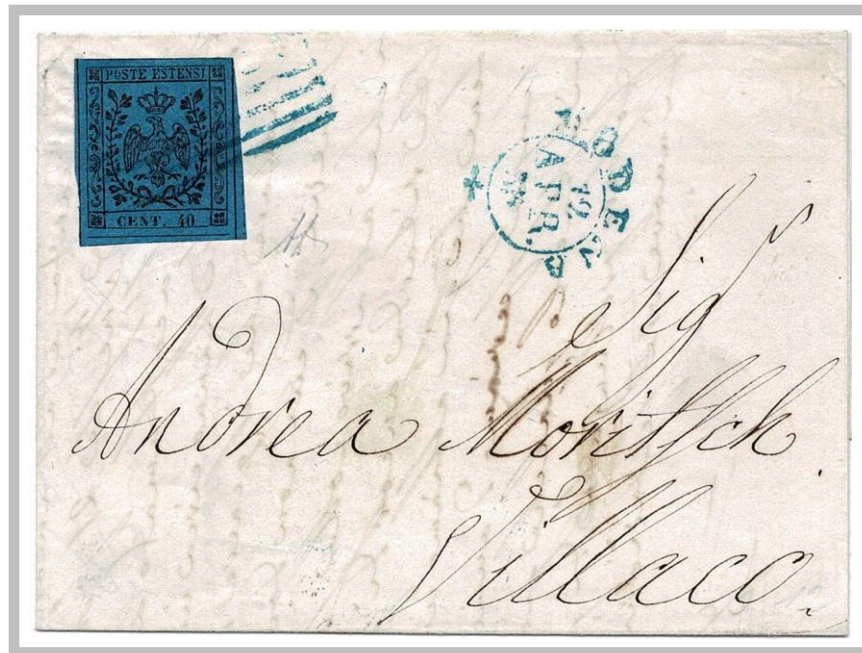 POSTE ESTENSI
CENT. 40
MODENA
19
APR.
Sig
Andrea Moritsch
Villaco.